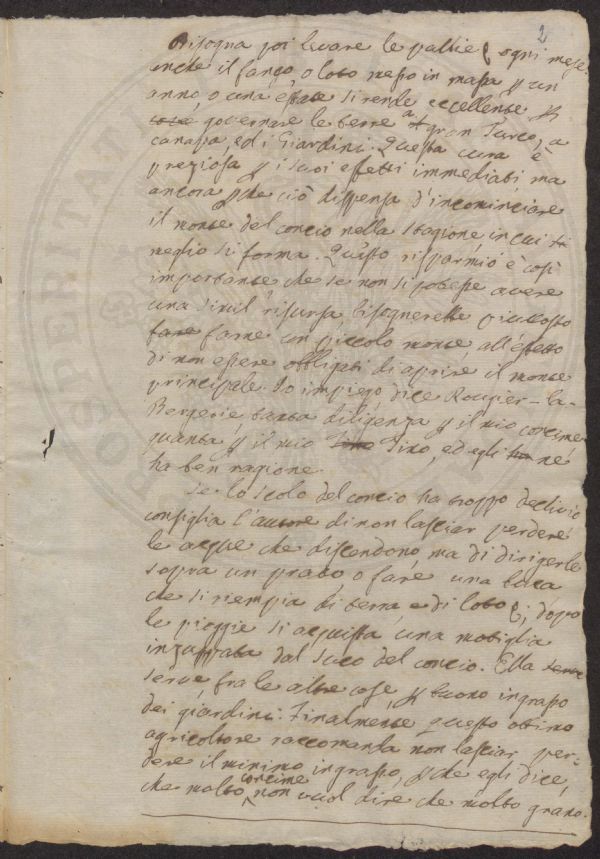 2
Bisogna poi levare le pattie ogni mese
anche il fango, o loto messo in massa p un
anno, o una estate si rende eccellente p
governare le terre a gran Turco, a
canapa, ed i Giardini. Questa cura è
preziosa p i suoi effetti immediati, ma
ancora pche ciò dispensa d'incominciare
il monte del concio nella stagione, in cui si
meglio si forma. Questo risparmio è così
importante che se non si potesse avere
una simil risorsa, bisognerebbe piuttosto
fare farne un piccolo monte, all'effetto
di non essere obbligati di aprire il monte
principale. Io impiego, dice Rougier-la-
Bergerie, tanta diligenza p il mio concime
quanta p il mio Tino, ed egli ne
ha ben ragione.
Se lo scolo del concio ha troppo declivio
consiglia l'autore di non lasciar perdere
le acque che discendono, ma di dirigerle
sopra un prato, o fare una buca
che si riempia di terra, e di loto, dopo
le pioggie si acquista una motiglia
inzuppata dal suco del concio. Ella
serve, fra le altre cose, p buono ingrasso
dei giardini. Finalmente questo ottimo
agricoltore raccomanda non lasciar per-
dere il minimo ingrasso, pche egli dice,
che molto concime non vuol dire che molto grano.